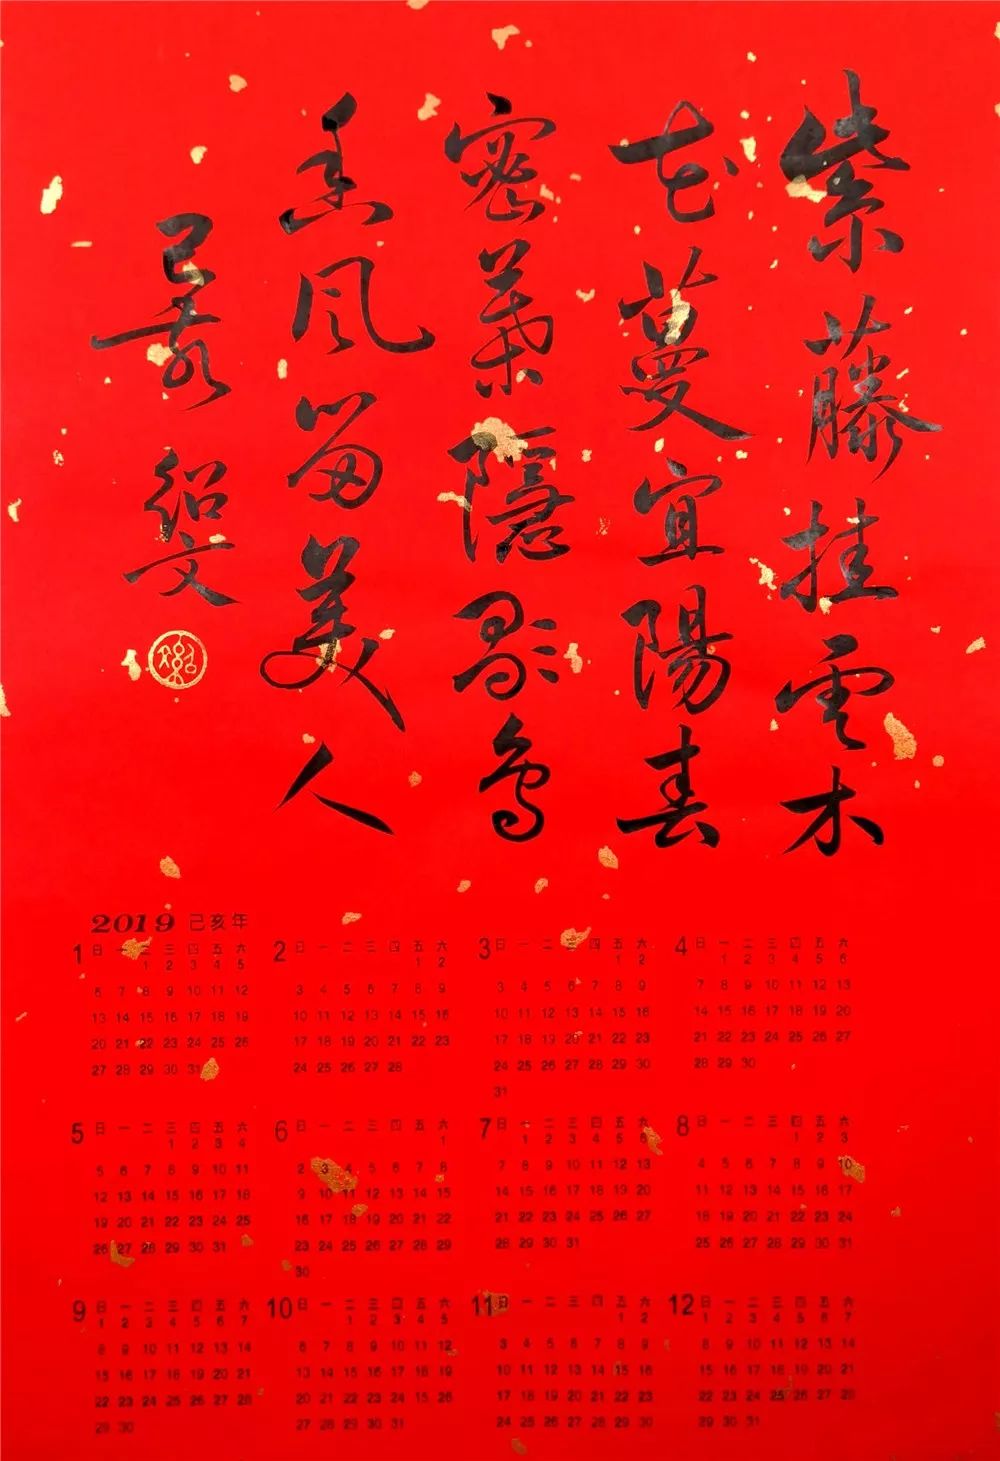 紫藤挂雲木
花蔓宜陽春
密葉隱歌鳥
香風留美人
己亥 紹文
2019 己亥年
1 日 一 二 三 四 五 六
1 2 3 4 5
6 7 8 9 10 11 12
13 14 15 16 17 18 19
20 21 22 23 24 25 26
27 28 29 30 31
2 日 一 二 三 四 五 六
1 2
3 4 5 6 7 8 9
10 11 12 13 14 15 16
17 18 19 20 21 22 23
24 25 26 27 28
3 日 一 二 三 四 五 六
1 2
3 4 5 6 7 8 9
10 11 12 13 14 15 16
17 18 19 20 21 22 23
24 25 26 27 28 29 30
31
4 日 一 二 三 四 五 六
1 2 3 4 5 6
7 8 9 10 11 12 13
14 15 16 17 18 19 20
21 22 23 24 25 26 27
28 29 30
5 日 一 二 三 四 五 六
1 2 3 4
5 6 7 8 9 10 11
12 13 14 15 16 17 18
19 20 21 22 23 24 25
26 27 28 29 30 31
6 日 一 二 三 四 五 六
1
2 3 4 5 6 7 8
9 10 11 12 13 14 15
16 17 18 19 20 21 22
23 24 25 26 27 28 29
30
7 日 一 二 三 四 五 六
1 2 3 4 5 6
7 8 9 10 11 12 13
14 15 16 17 18 19 20
21 22 23 24 25 26 27
28 29 30 31
8 日 一 二 三 四 五 六
1 2 3
4 5 6 7 8 9 10
11 12 13 14 15 16 17
18 19 20 21 22 23 24
25 26 27 28 29 30 31
9 日 一 二 三 四 五 六
1 2 3 4 5 6 7
8 9 10 11 12 13 14
15 16 17 18 19 20 21
22 23 24 25 26 27 28
29 30
10 日 一 二 三 四 五 六
1 2 3 4 5
6 7 8 9 10 11 12
13 14 15 16 17 18 19
20 21 22 23 24 25 26
27 28 29 30 31
11 日 一 二 三 四 五 六
1 2
3 4 5 6 7 8 9
10 11 12 13 14 15 16
17 18 19 20 21 22 23
24 25 26 27 28 29 30
12 日 一 二 三 四 五 六
1 2 3 4 5 6 7
8 9 10 11 12 13 14
15 16 17 18 19 20 21
22 23 24 25 26 27 28
29 30 31